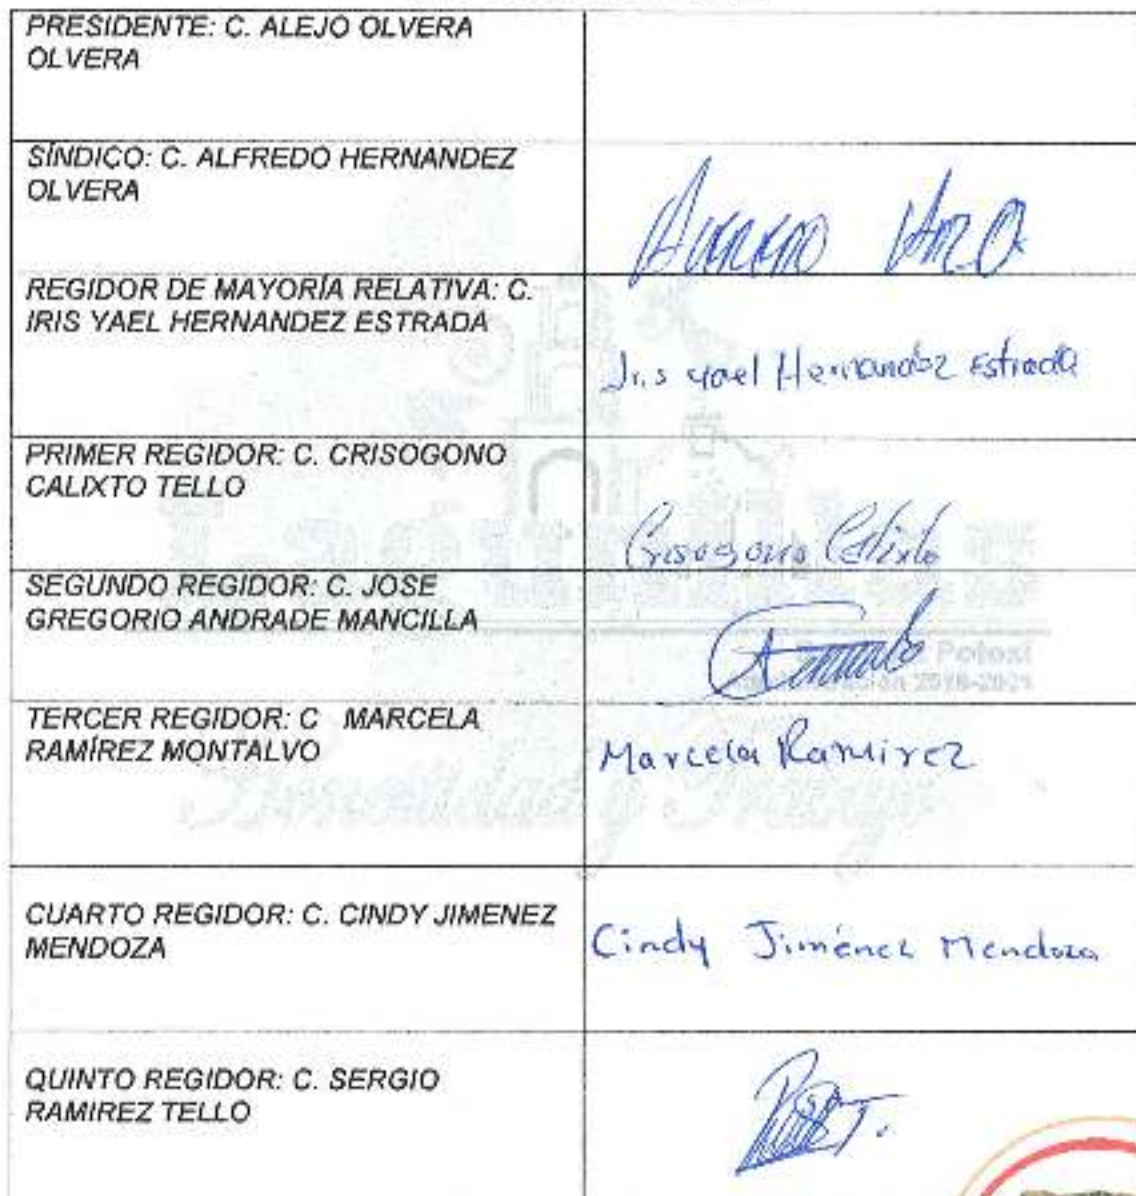 PRESIDENTE: C. ALEJO OLVERA
OLVERA
SÍNDICO: C. ALFREDO HERNANDEZ
OLVERA
REGIDOR DE MAYORÍA RELATIVA: C.
IRIS YAEL HERNANDEZ ESTRADA
Iris yael Hernandez Estrada
PRIMER REGIDOR: C. CRISOGONO
CALIXTO TELLO
Crisogono Calixto
SEGUNDO REGIDOR: C. JOSE
GREGORIO ANDRADE MANCILLA
Potosí
2018-2021
TERCER REGIDOR: C MARCELA
RAMÍREZ MONTALVO
Marcela Ramirez
CUARTO REGIDOR: C. CINDY JIMENEZ
MENDOZA
Cindy Jiménez Mendoza
QUINTO REGIDOR: C. SERGIO
RAMIREZ TELLO